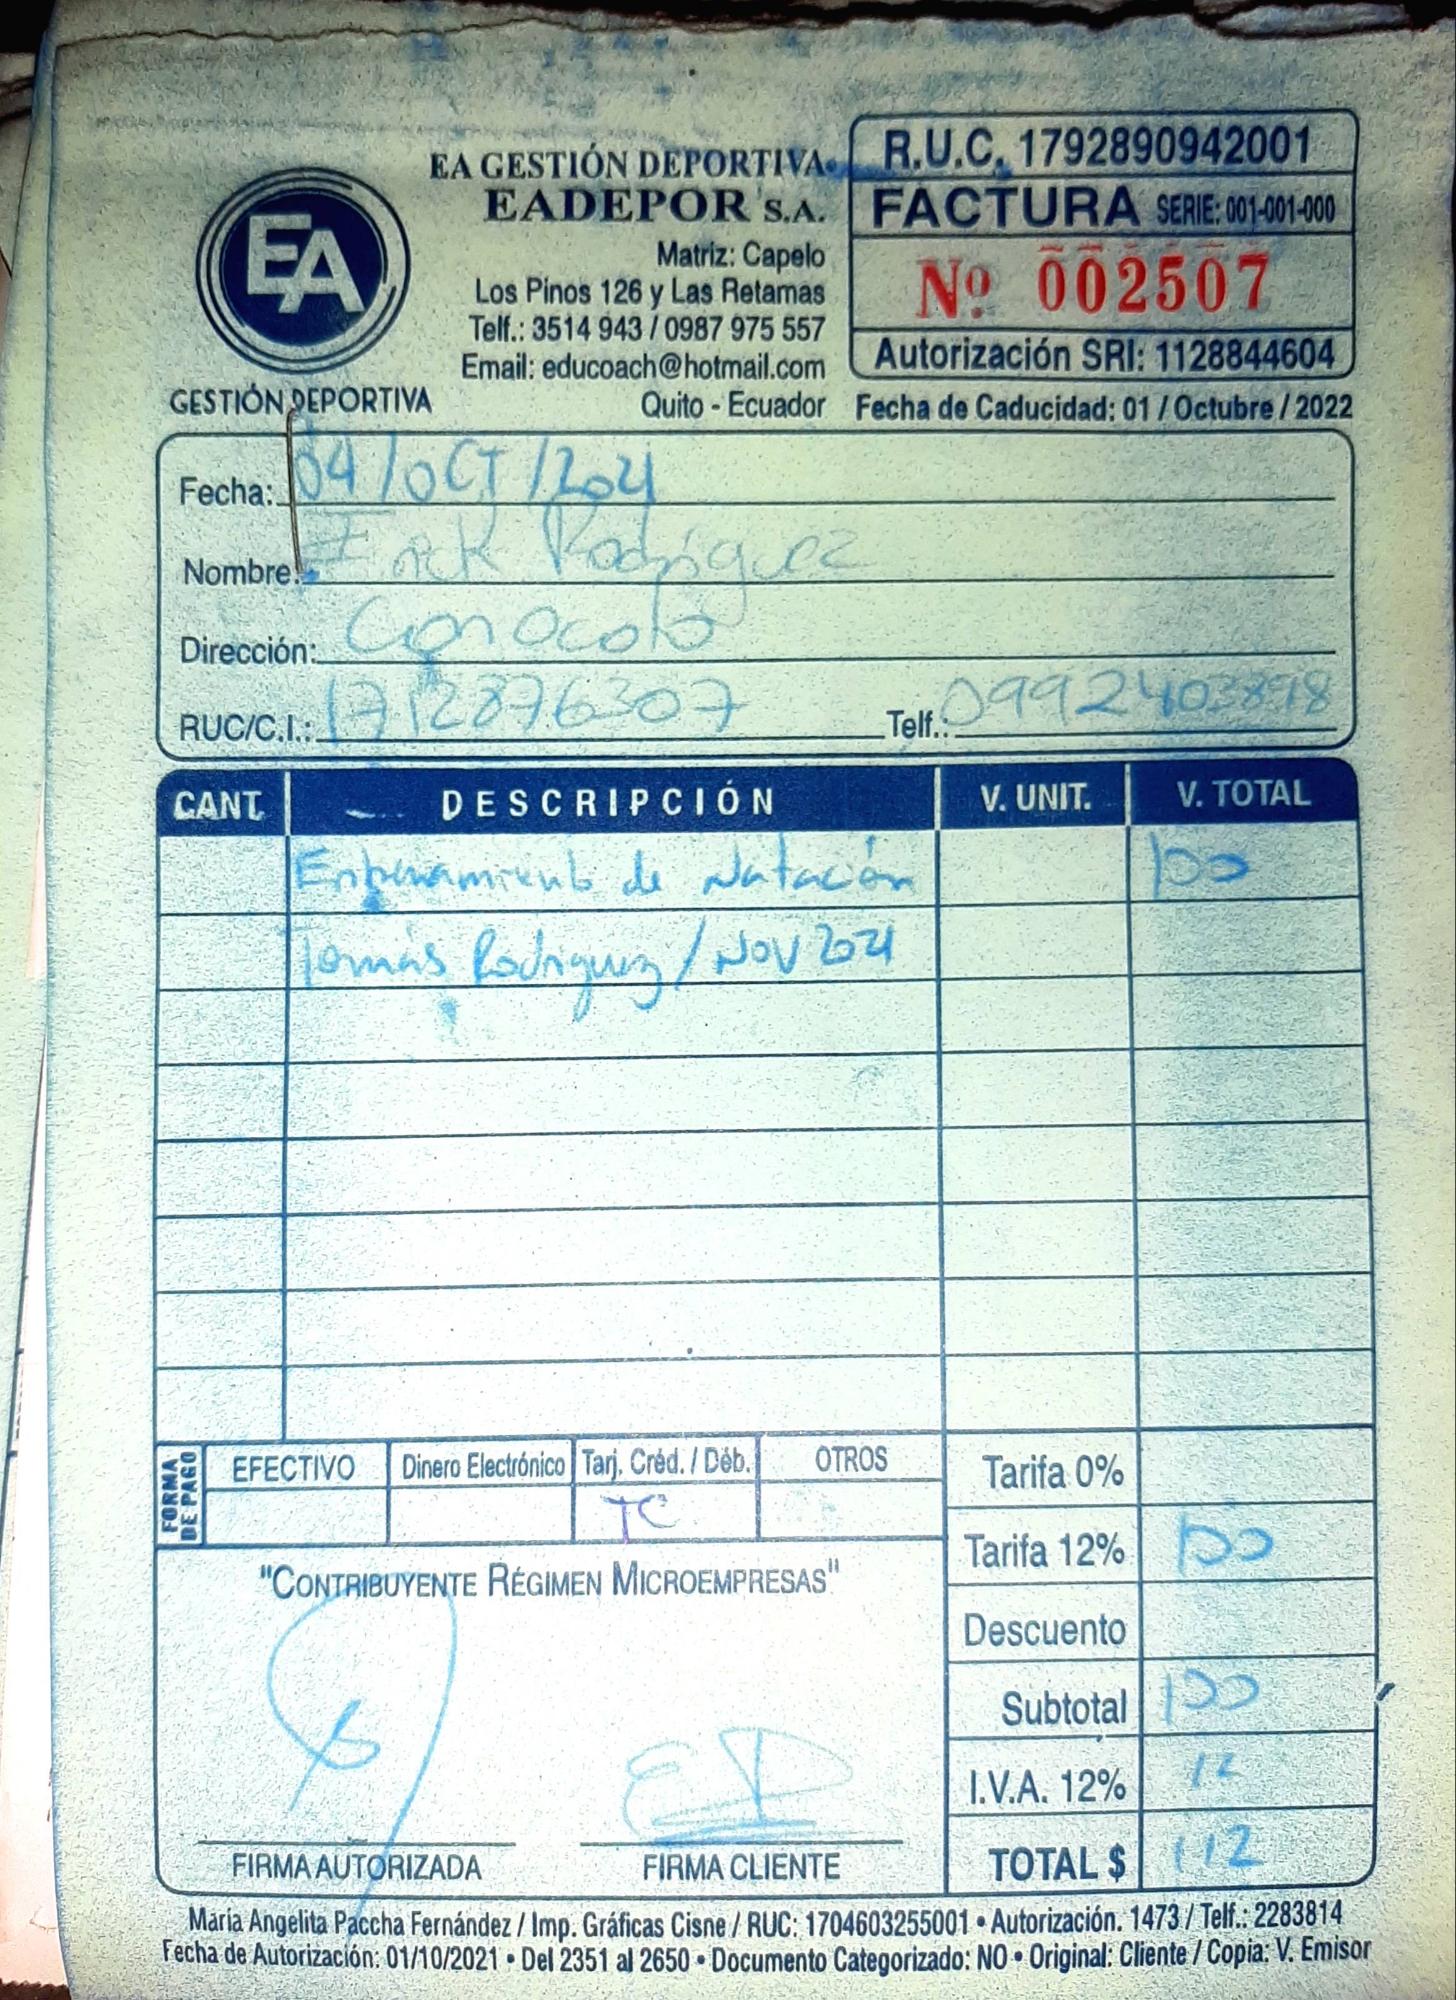 EA
GESTIÓN DEPORTIVA
EA GESTIÓN DEPORTIVA
EADEPOR S.A.
Matriz: Capelo
Los Pinos 126 y Las Retamas
Telf.: 3514 943 / 0987 975 557
Email: educoach@hotmail.com
Quito - Ecuador
R.U.C. 1792890942001
FACTURA SERIE: 001-001-000
Nº 002507
Autorización SRI: 1128844604
Fecha de Caducidad: 01 / Octubre / 2022
Fecha: 04/OCT/2021
Nombre: Erick Rodriguez
Dirección: Conocoto
RUC/C.I.: 1712876307 Telf.: 0992403898
CANT. DESCRIPCIÓN V. UNIT. V. TOTAL
Entrenamiento de Natación 100
Tomás Rodriguez / NOV 2021
FORMA DE PAGO
EFECTIVO Dinero Electrónico Tarj. Créd. / Déb. OTROS
TC
Tarifa 0%
Tarifa 12% 100
Descuento
Subtotal 100
I.V.A. 12% 12
TOTAL $ 112
"CONTRIBUYENTE RÉGIMEN MICROEMPRESAS"
FIRMA AUTORIZADA FIRMA CLIENTE
María Angelita Paccha Fernández / Imp. Gráficas Cisne / RUC: 1704603255001 • Autorización. 1473 / Telf.: 2283814
Fecha de Autorización: 01/10/2021 • Del 2351 al 2650 • Documento Categorizado: NO • Original: Cliente / Copia: V. Emisor